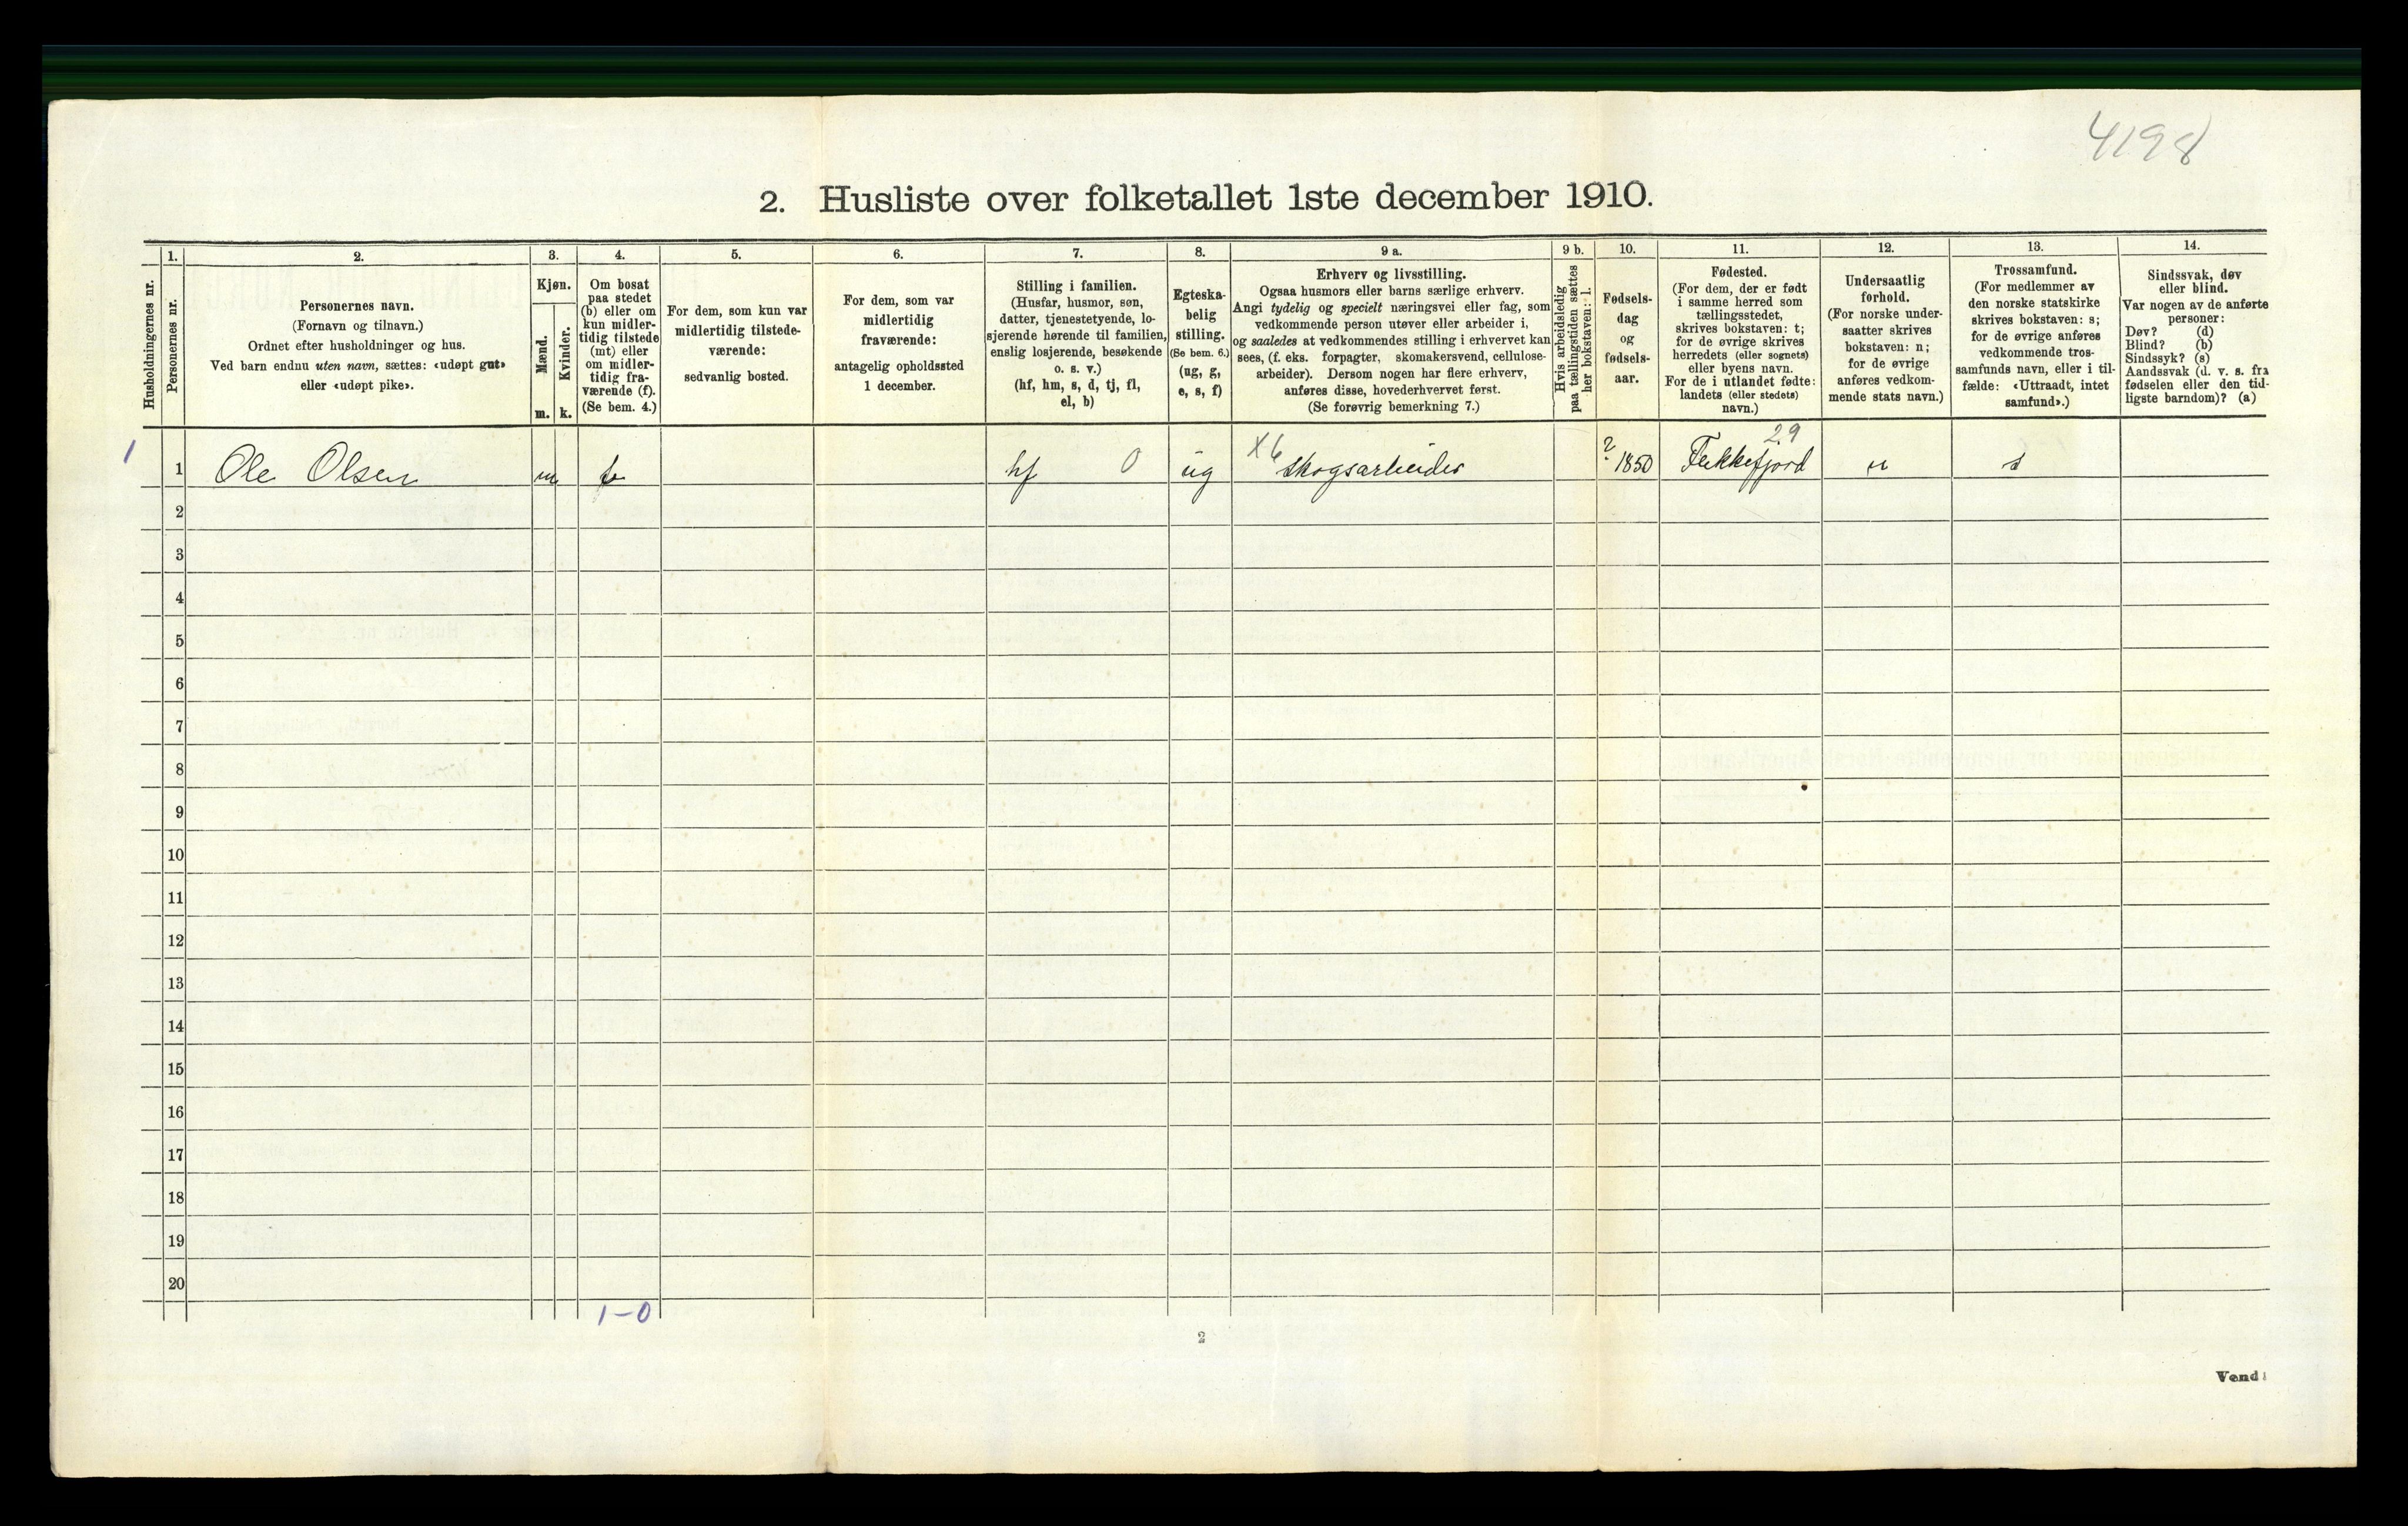 4198
2. Husliste over folketallet 1ste december 1910.
Husholdningernes nr.
1.
Personernes nr.
2.
Personernes navn.
(Fornavn og tilnavn.)
Ordnet efter husholdninger og hus.
Ved barn endnu uten navn, sættes: «udøpt gut»
eller «udøpt pike».
3.
Kjøn.
Mænd.
Kvinder.
m. k.
4.
Om bosat
paa stedet
(b) eller om
kun midler-
tidig tilstede
(mt) eller
om midler-
tidig fra-
værende (f).
(Se bem. 4.)
5.
For dem, som kun var
midlertidig tilstede-
værende:
sedvanlig bosted.
6.
For dem, som var
midlertidig
fraværende:
antagelig opholdssted
1 december.
7.
Stilling i familien.
(Husfar, husmor, søn,
datter, tjenestetyende, lo-
sjerende hørende til familien,
enslig losjerende, besøkende
o. s. v.)
(hf, hm, s, d, tj, fl,
el, b)
8.
Egteska-
belig
stilling.
(Se bem. 6.)
(ug, g,
e, s, f)
9 a.
Erhverv og livsstilling.
Ogsaa husmors eller barns særlige erhverv.
Angi tydelig og specielt næringsvei eller fag, som
vedkommende person utøver eller arbeider i,
og saaledes at vedkommendes stilling i erhvervet kan
sees, (f. eks. forpagter, skomakersvend, cellulose-
arbeider). Dersom nogen har flere erhverv,
anføres disse, hovederhvervet først.
(Se forøvrig bemerkning 7.)
9 b.
Hvis arbeidsledig
paa tællingstiden sættes
her bokstaven: l.
10.
Fødsels-
dag
og
fødsels-
aar.
11.
Fødested.
(For dem, der er født
i samme herred som
tællingsstedet,
skrives bokstaven: t;
for de øvrige skrives
herredets (eller sognets)
eller byens navn.
For de i utlandet fødte:
landets (eller stedets)
navn.)
12.
Undersaatlig
forhold.
(For norske under-
saatter skrives
bokstaven: n;
for de øvrige
anføres vedkom-
mende stats navn.)
13.
Trossamfund.
(For medlemmer av
den norske statskirke
skrives bokstaven: s;
for de øvrige anføres
vedkommende tros-
samfunds navn, eller i til-
fælde: «Uttraadt, intet
samfund».)
14.
Sindssvak, døv
eller blind.
Var nogen av de anførte
personer:
Døv? (d)
Blind? (b)
Sindssyk? (s)
Aandssvak (d. v. s. fra
fødselen eller den tid-
ligste barndom)? (a)
1 1 Ole Olsen m b hf 0 ug X6 Skogsarbeider ? 1850 29 Flekkefjord n s
2
3
4
5
6
7
8
9
10
11
12
13
14
15
16
17
18
19
20
1-0
2
Vend!